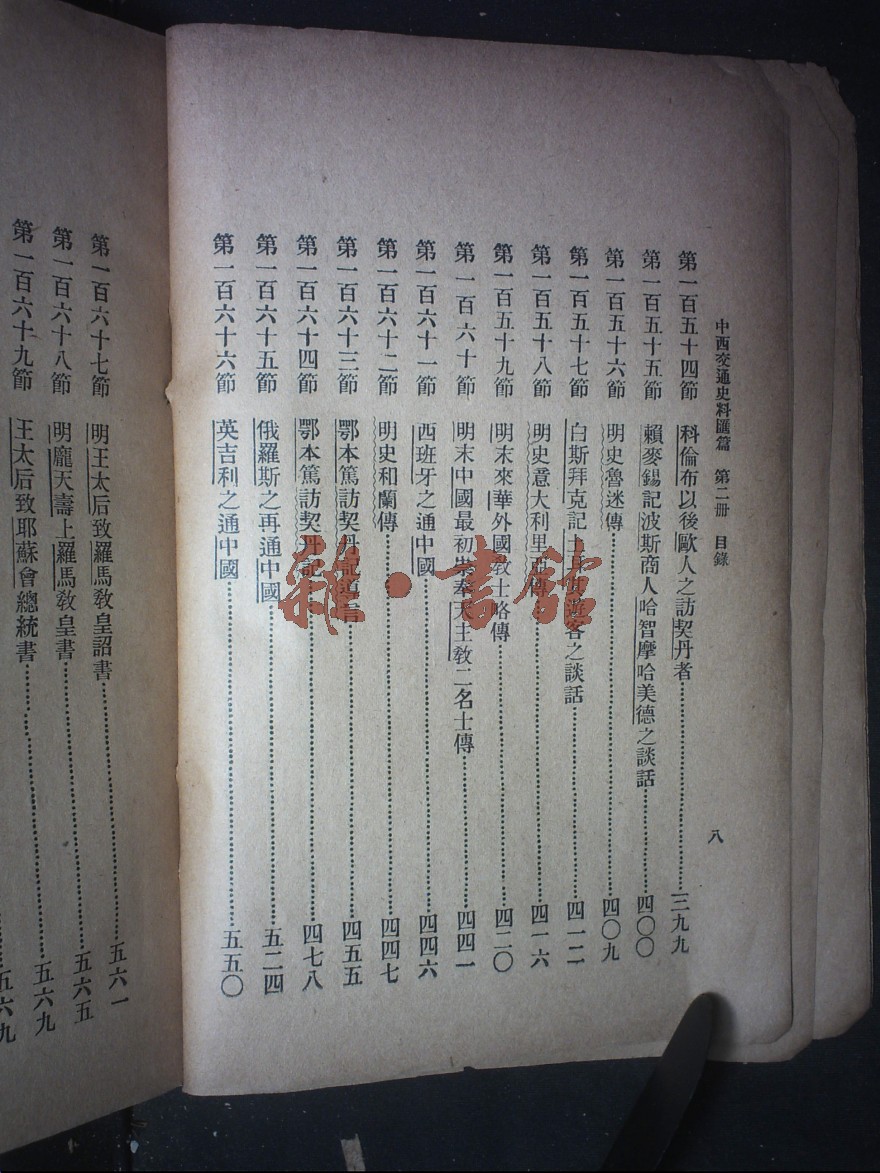 中西交通史料匯篇 第二册 目錄 八
第一百五十四節 科倫布以後歐人之訪契丹者……三九九
第一百五十五節 賴麥錫記波斯商人哈智摩哈美德之談話……四〇〇
第一百五十六節 明史魯迷傳……四〇九
第一百五十七節 白斯拜克記土耳其遊客之談話……四一二
第一百五十八節 明史意大利里亞傳……四一六
第一百五十九節 明末來華外國敎士略傳……四二〇
第一百六十節 明末中國最初崇奉天主敎二名士傳……四四一
第一百六十一節 西班牙之通中國……四四六
第一百六十二節 明史和蘭傳……四四七
第一百六十三節 鄂本篤訪契丹記導言……四五五
第一百六十四節 鄂本篤訪契丹記……四七八
第一百六十五節 俄羅斯之再通中國……五二四
第一百六十六節 英吉利之通中國……五五〇
第一百六十七節 明王太后致羅馬敎皇詔書……五六一
第一百六十八節 明龐天壽上羅馬敎皇書……五六五
第一百六十九節 王太后致耶蘇會總統書……五六九
五六九
雜·書館